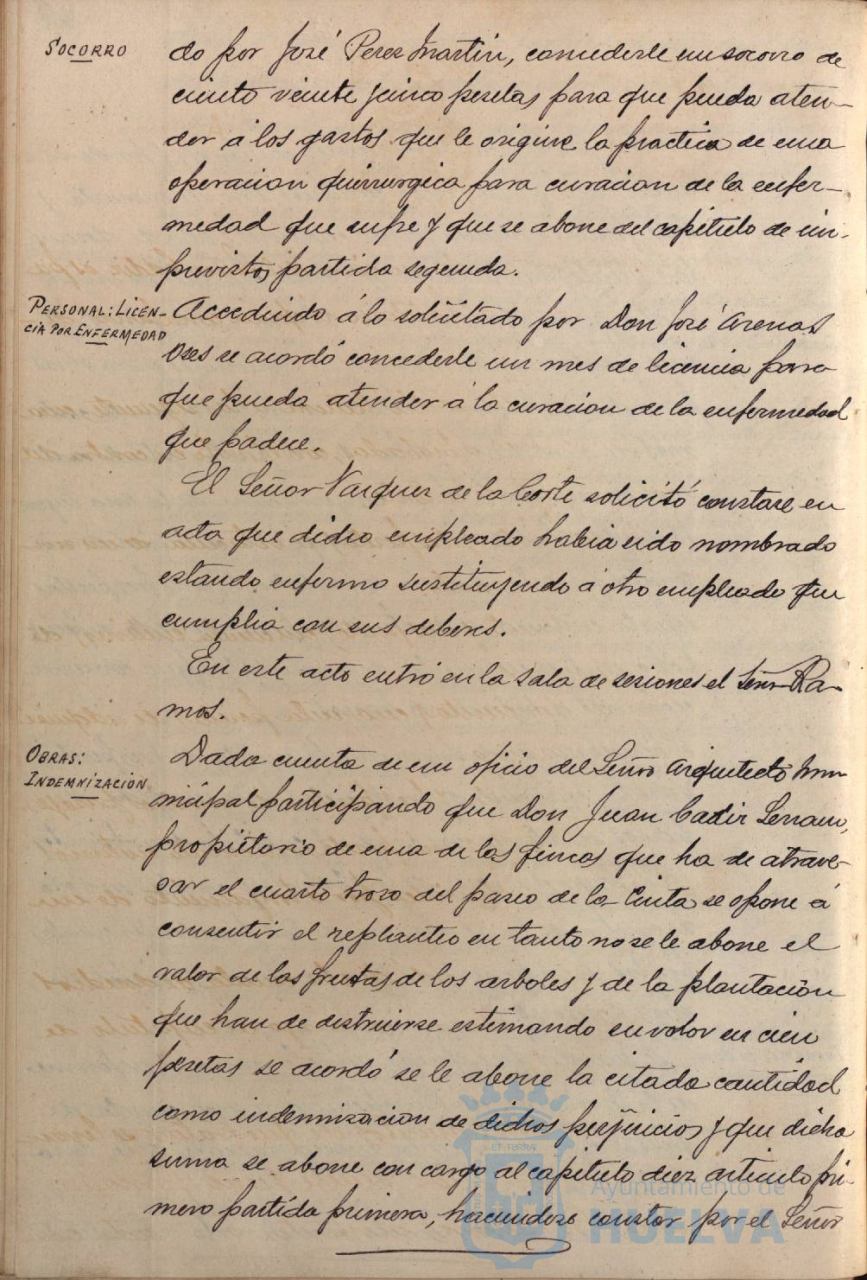 SOCORRO
do por José Perez Martin, concederle un socorro de
ciento veinte y cinco pesetas para que pueda aten-
der á los gastos que le origine la practica de una
operacion quirurgica para curacion de la enfer-
medad que sufre y que se abone del capitulo de im-
previstos partida segunda.
PERSONAL: LICEN-
CIA POR ENFERMEDAD
Accediendo á lo solicitado por Don José Arenas
Oses se acordó concederle un mes de licencia para
que pueda atender á la curacion de la enfermedad
que padece.
El Señor Vazquez de la Corte solicitó constase en
acta que dicho empleado habia sido nombrado
estando enfermo sustituyendo á otro empleado que
cumplia con sus deberes.
En este acto entró en la sala de sesiones el Señor Ra-
mos.
OBRAS:
INDEMNIZACIÓN
Dada cuenta de un oficio del Señor Arquitecto mu-
nicipal participando que Don Juan Cadir Serrano,
propietario de una de las fincas que ha de atrave-
sar el cuarto trozo del paseo de la Cinta se opone á
consentir el replanteo en tanto no se le abone el
valor de las frutas de los arboles y de la plantación
que han de destruirse estimando su valor en cien
pesetas se acordó se le abone la citada cantidad
como indemnizacion de dichos perjuicios y que dicha
suma se abone con cargo al capitulo diez articulo pri-
mero partida primera, haciendose constar por el Señor
Ayuntamiento de
HUELVA